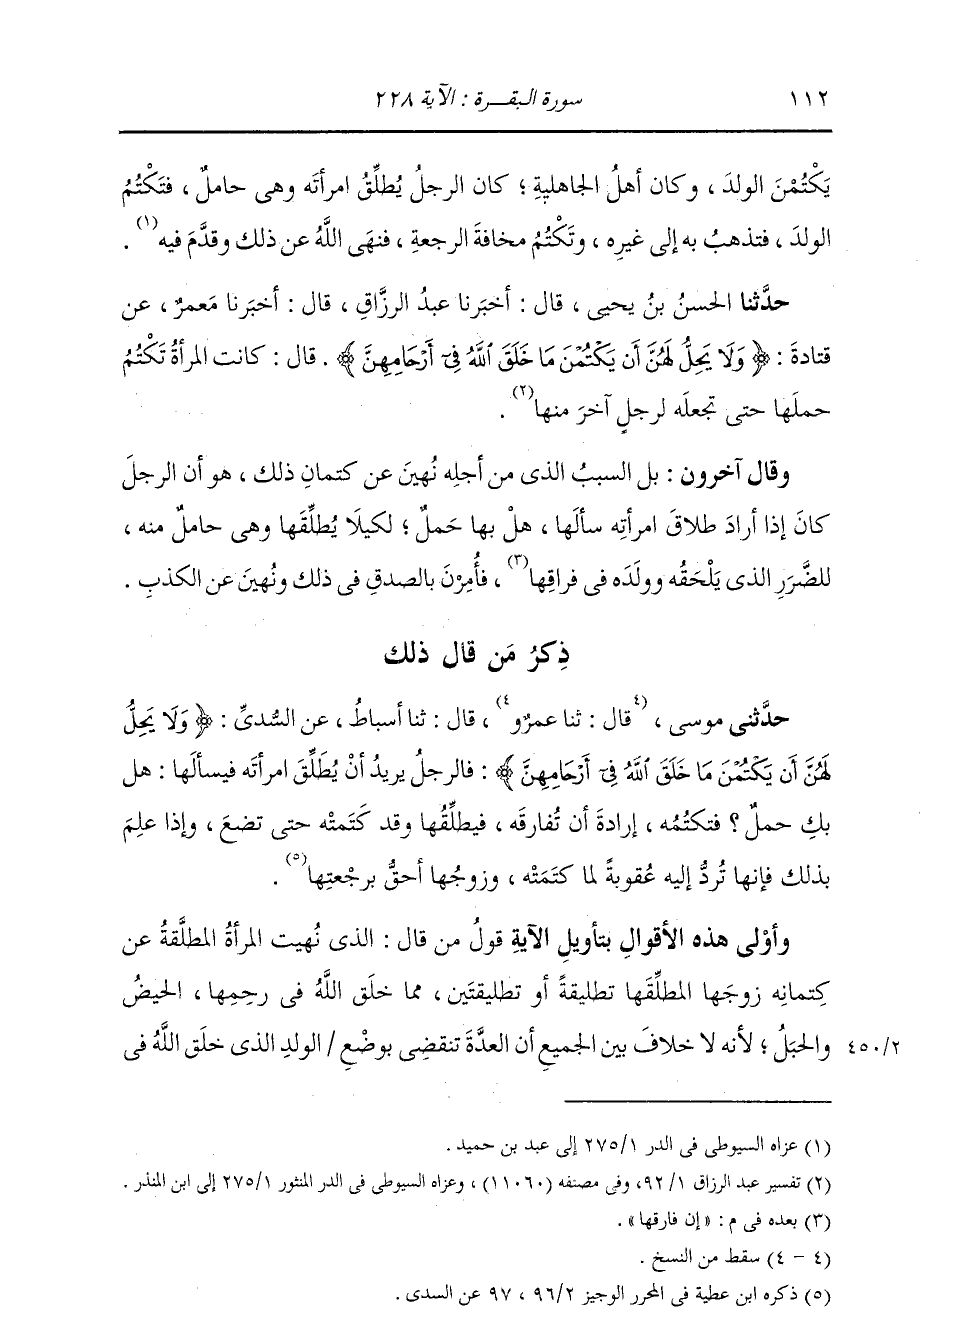 ١١٢ سورة البقرة : الآية ٢٢٨
يَكْتُمْنَ الولدَ ، وكان أهلُ الجاهليةِ ؛ كان الرجلُ يُطلِّقُ امرأتَه وهى حاملٌ ، فتَكْتُمُ
الولدَ ، فتذهبُ به إلى غيرِه ، وتَكْتُمُ مخافةَ الرجعةِ ، فنهَى اللَّهُ عن ذلك وقدَّمَ فيه(١) .
حدَّثنا الحسنُ بنُ يحيى ، قال : أخبَرنا عبدُ الرزَّاقِ ، قال : أخبَرنا مَعمرٌ ، عن
قتادةَ : ﴿ وَلَا يَحِلُّ لَهُنَّ أَن يَكْتُمْنَ مَا خَلَقَ ٱللَّهُ فِىٓ أَرْحَامِهِنَّ ﴾ . قال : كانت المرأةُ تَكْتُمُ
حملَها حتى تجعلَه لرجلٍ آخرَ منها(٢) .
وقال آخرون : بل السببُ الذى من أجلِه نُهينَ عن كتمانِ ذلك ، هو أن الرجلَ
كانَ إذا أرادَ طلاقَ امرأتِه سألَها ، هلْ بها حَملٌ ؛ لكيلَا يُطلِّقَها وهى حاملٌ منه ،
للضَّرَرِ الذى يَلْحَقُه وولَدَه فى فراقِها(٣) ، فأُمِرْنَ بالصدقِ فى ذلك ونُهينَ عن الكذبِ .
ذِكرُ مَن قال ذلك
حدَّثنى موسى ، (٤قال : ثنا عمرٌو٤) ، قال : ثنا أسباطُ ، عن السُّدىِّ : ﴿ وَلَا يَحِلُّ
لَهُنَّ أَن يَكْتُمْنَ مَا خَلَقَ ٱللَّهُ فِىٓ أَرْحَامِهِنَّ ﴾ : فالرجلُ يريدُ أنْ يُطَلِّقَ امرأتَه فيسألَها : هل
بكِ حملٌ ؟ فتكتُمُه ، إرادةَ أن تُفارقَه ، فيطلِّقُها وقد كَتَمتْه حتى تضعَ ، وإذا علِمَ
بذلك فإنها تُردُّ إليه عُقوبةً لما كتَمَتْه ، وزوجُها أحقُّ برجْعتِها(٥) .
وأوْلى هذه الأقوالِ بتأويلِ الآيةِ قولُ من قال : الذى نُهيت المرأةُ المطلَّقةُ عن
كِتمانِه زوجَها المطلِّقَها تطليقةً أو تطليقتَين ، مما خلَق اللَّهُ فى رحِمِها ، الحيضُ
والحبَلُ ؛ لأنه لا خلافَ بين الجميعِ أن العدَّةَ تنقضِى بوضْعِ / الولدِ الذى خلَق اللَّهُ فى ٤٥٠/٢
(١) عزاه السيوطى فى الدر ٢٧٥/١ إلى عبد بن حميد .
(٢) تفسير عبد الرزاق ٩٢/١، وفى مصنفه (١١٠٦٠) ، وعزاه السيوطى فى الدر المنثور ٢٧٥/١ إلى ابن المنذر .
(٣) بعده فى م : «إن فارقها» .
(٤ - ٤) سقط من النسخ .
(٥) ذكره ابن عطية فى المحرر الوجيز ٩٦/٢ ، ٩٧ عن السدى .